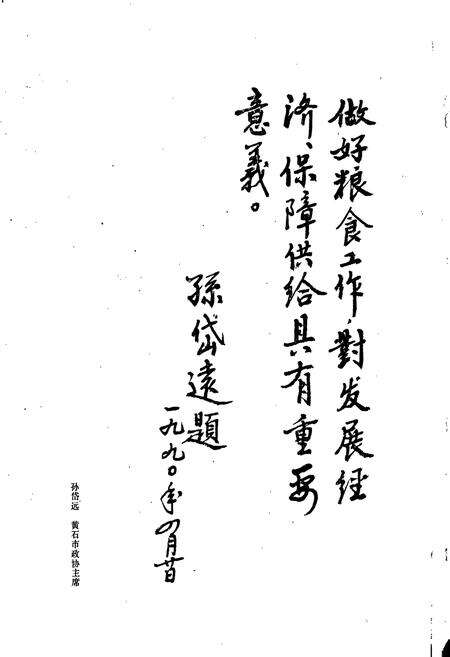 做好粮食工作,對发展经
济、保障供给具有重要
意義。
孫岱遠題
一九九〇年四月廿日
孙岱远 黄石市政协主席